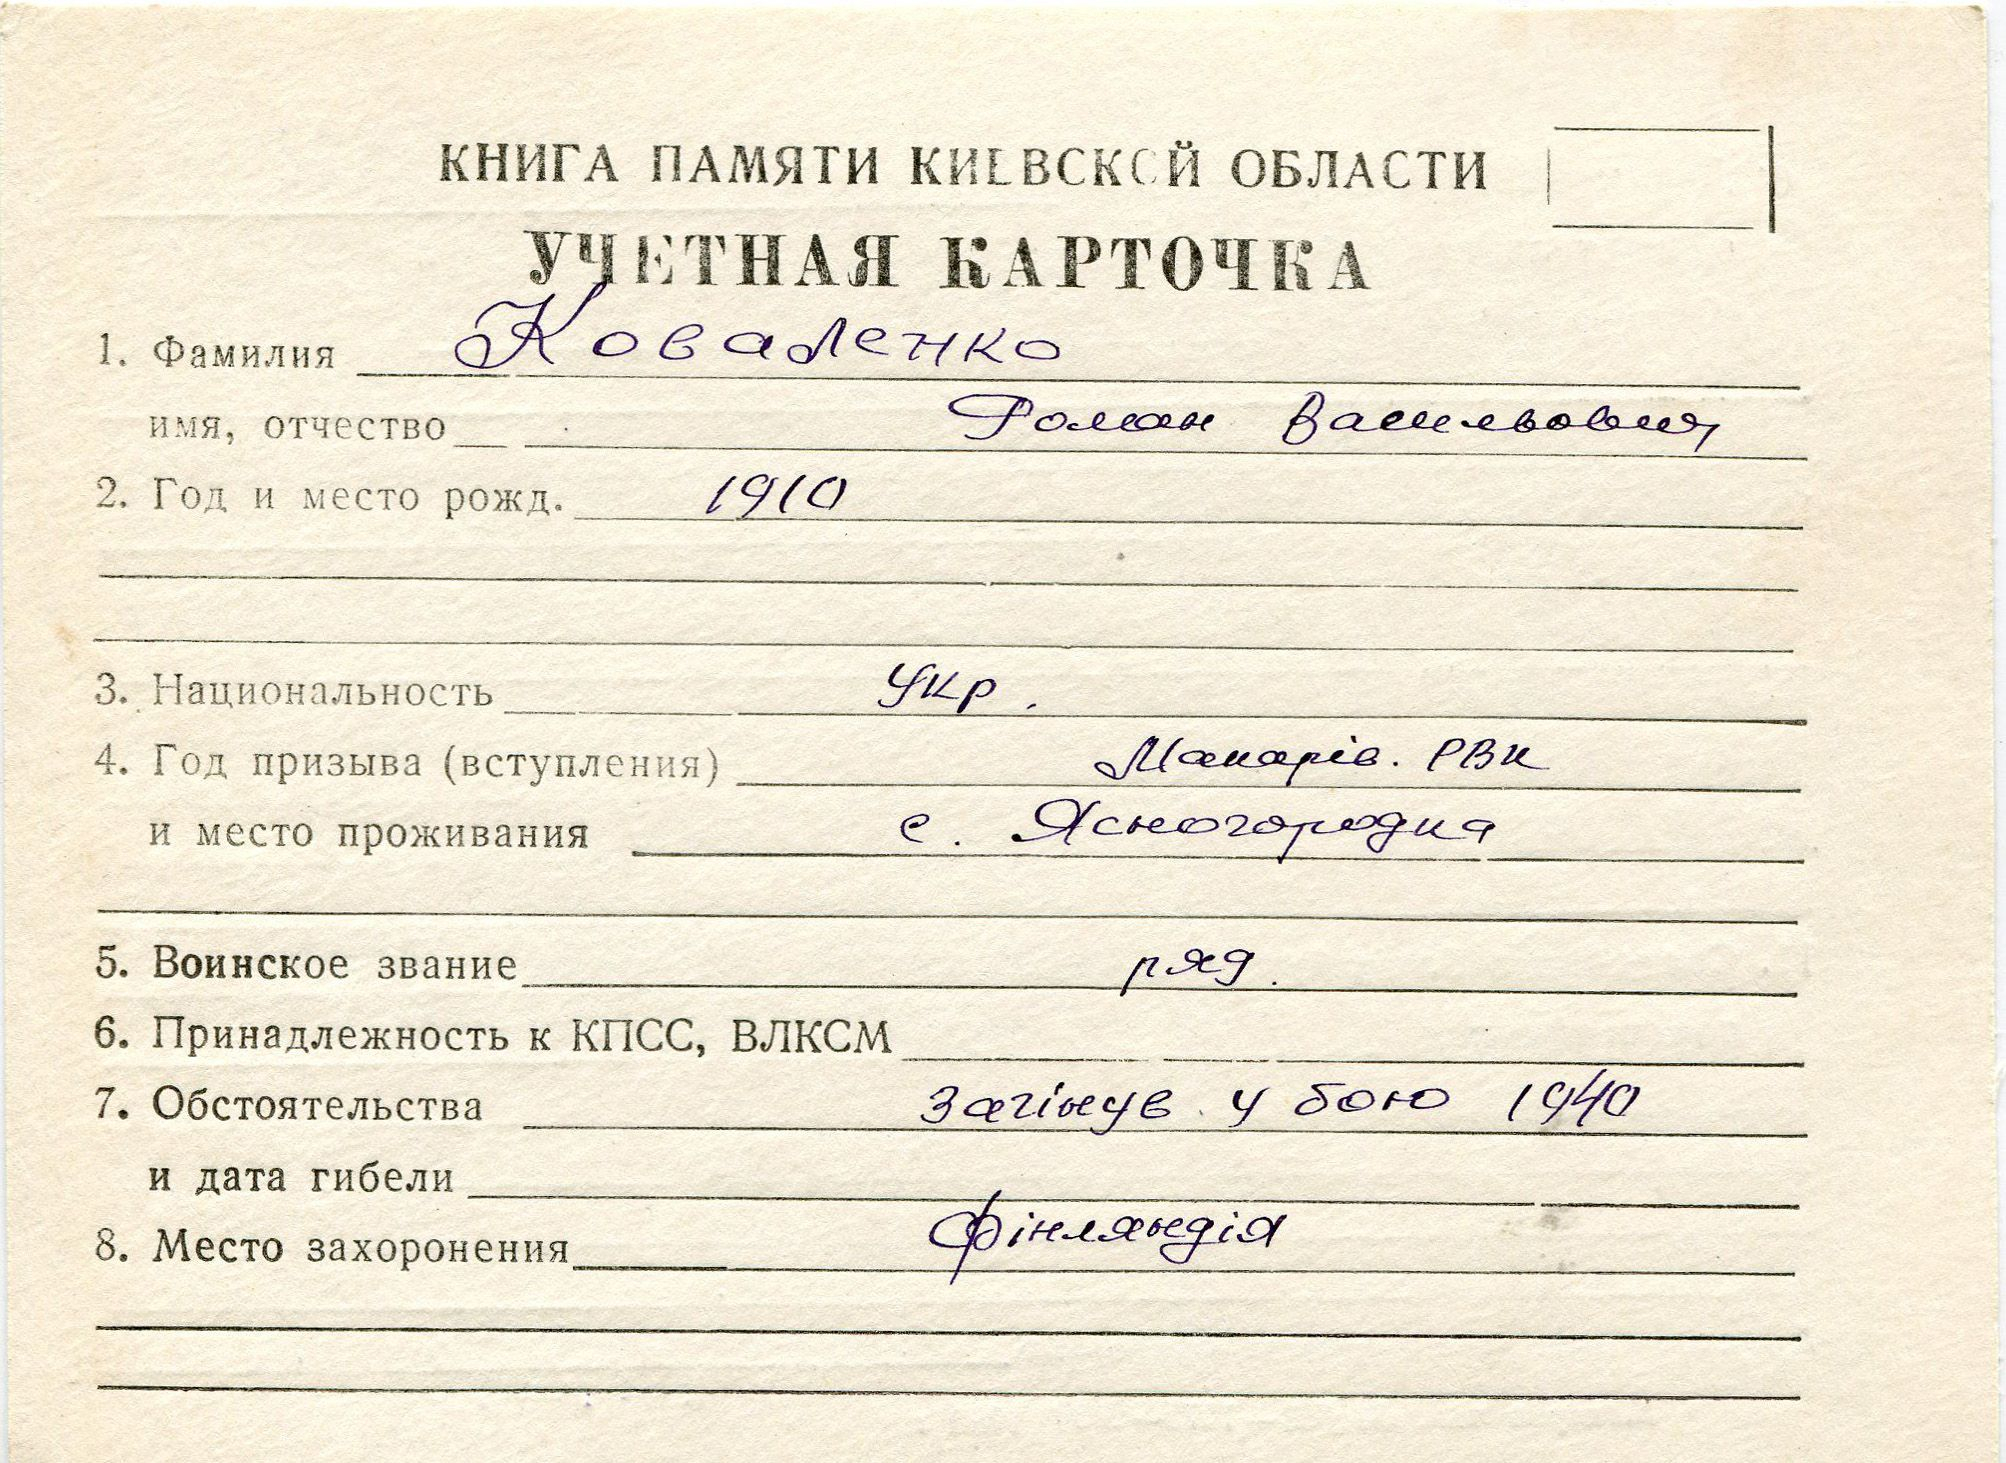 КНИГА ПАМЯТИ КИЕВСКОЙ ОБЛАСТИ
УЧЕТНАЯ КАРТОЧКА
1. Фамилия Коваленко
имя, отчество Роман Васильович
2. Год и место рожд. 1910
3. Национальность Укр.
4. Год призыва (вступления) Макарів. РВК
и место проживания с. Ясногородка
5. Воинское звание ряд.
6. Принадлежность к КПСС, ВЛКСМ
7. Обстоятельства Загінув у бою 1940
и дата гибели
8. Место захоронения Фінляндія